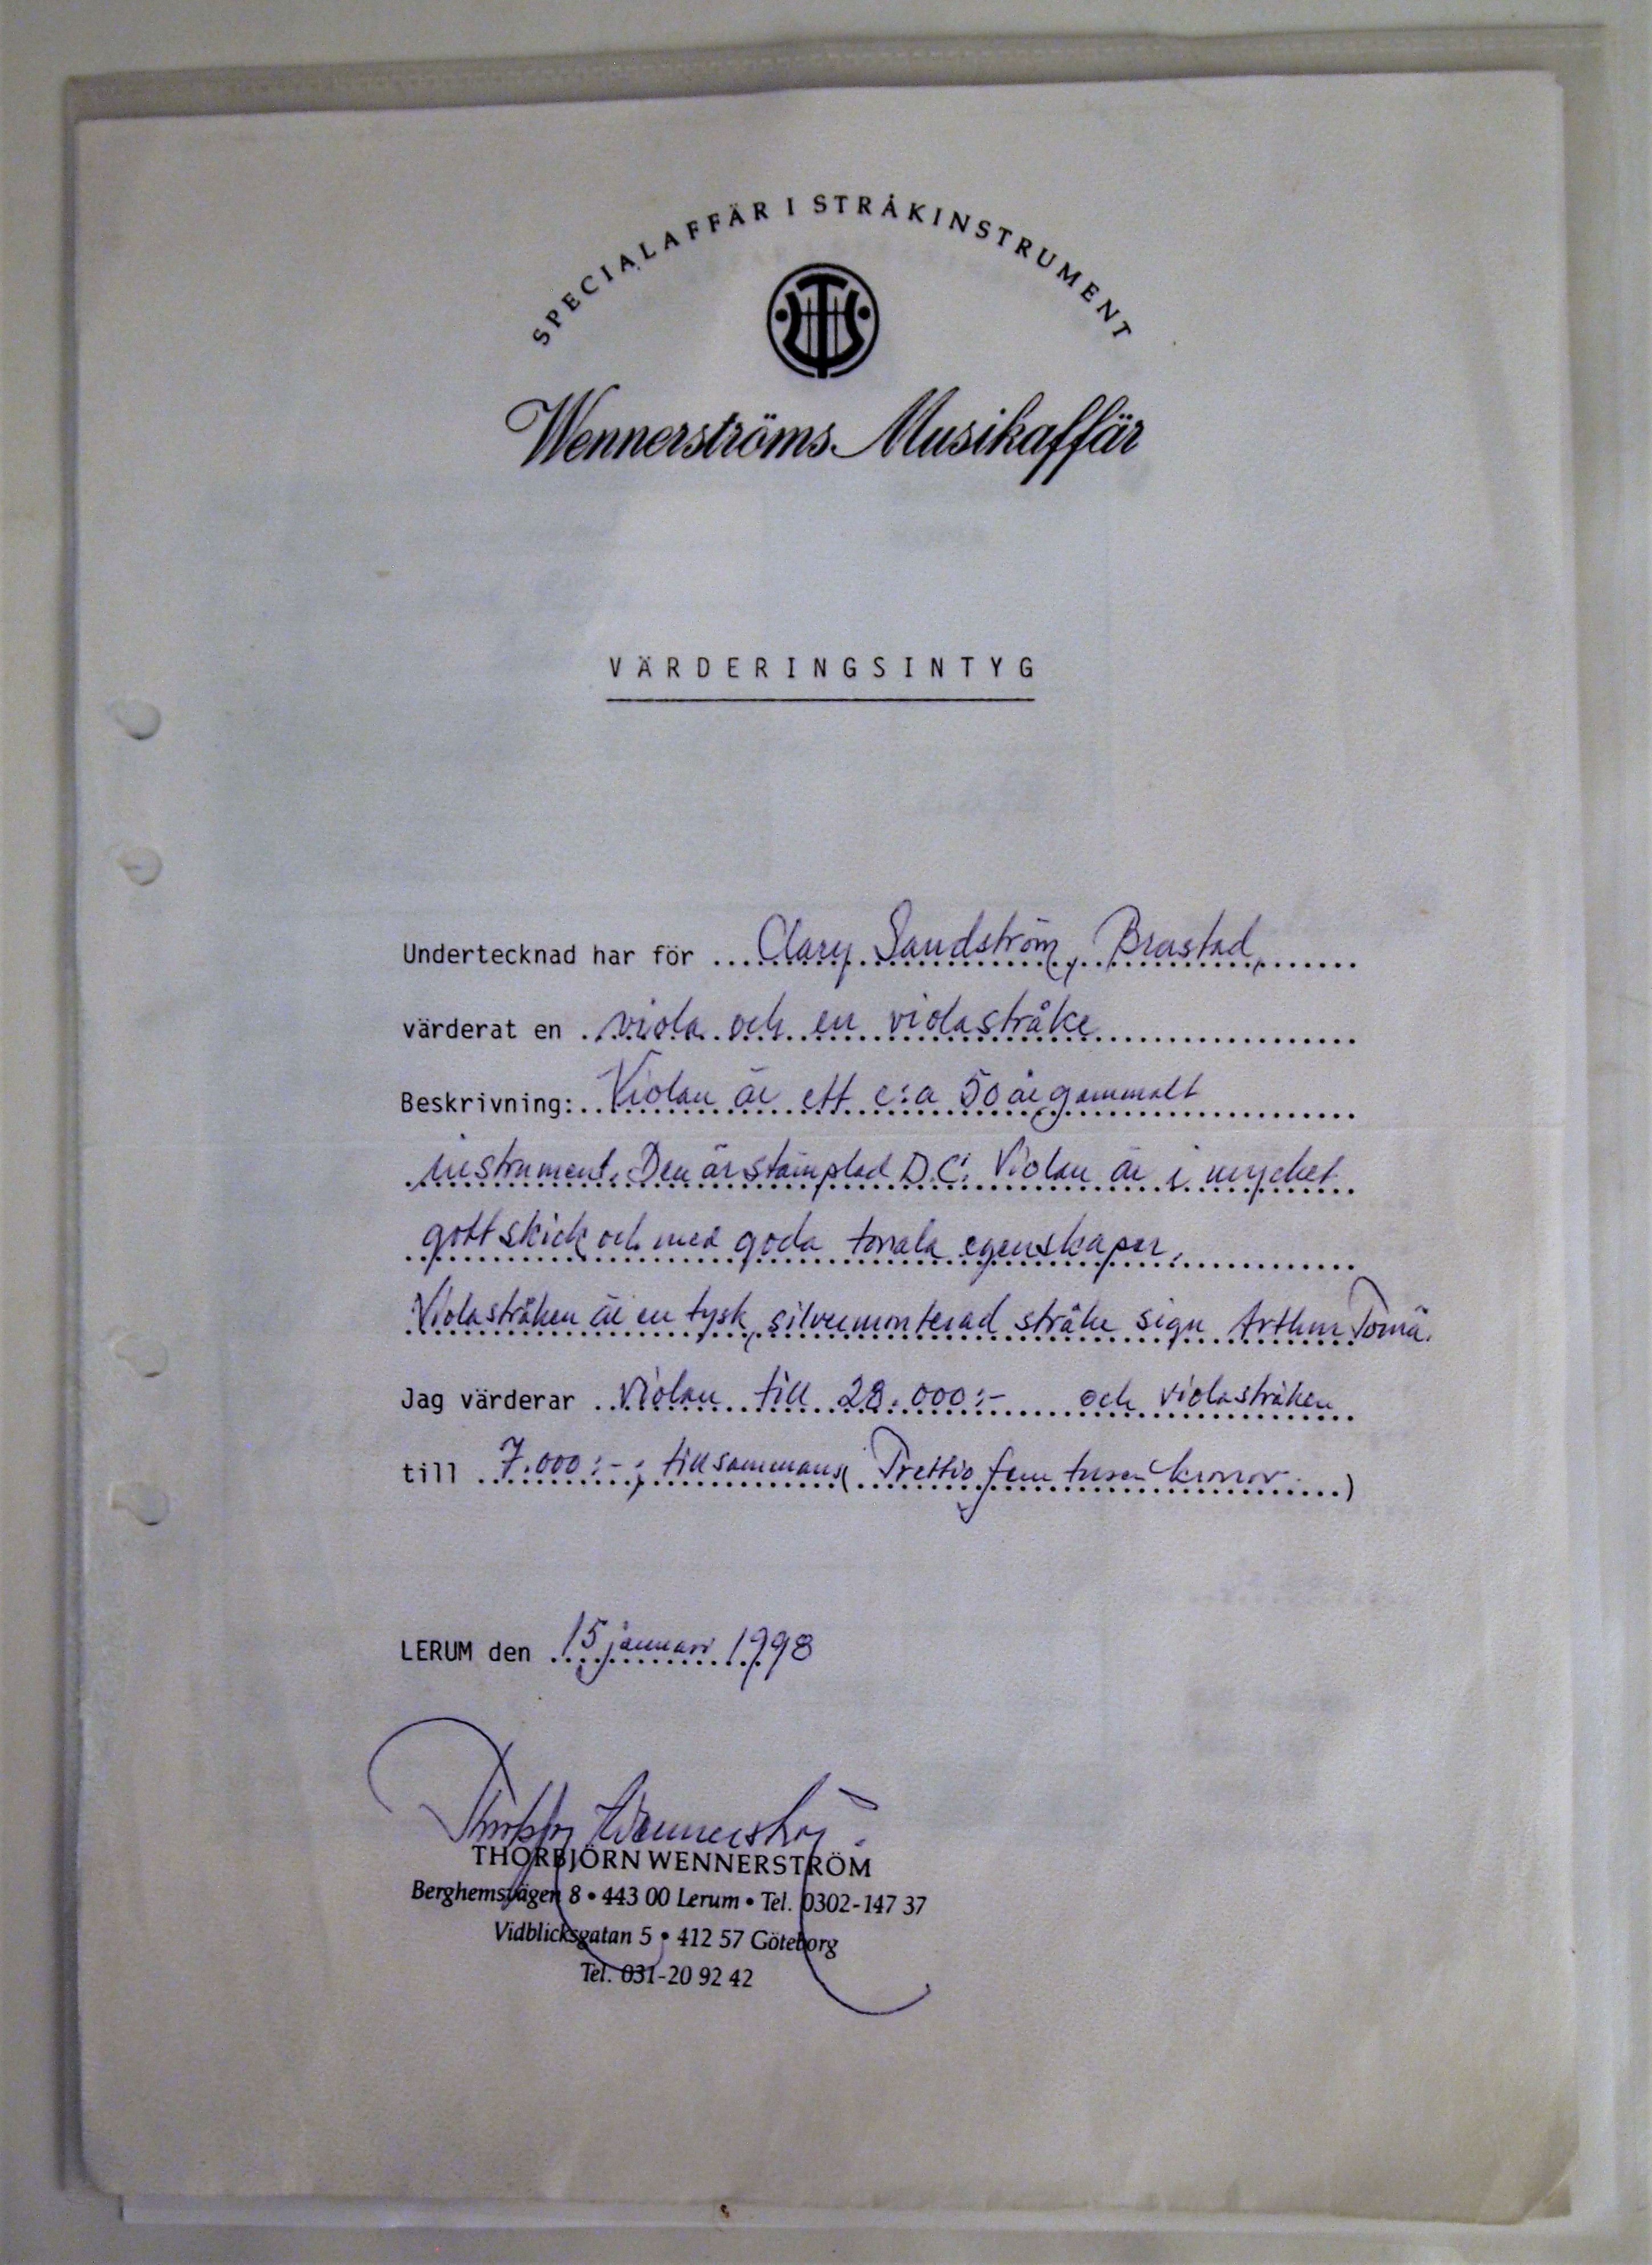 SPECIALAFFÄR I STRÅKINSTRUMENT
Wennerströms Musikaffär
VÄRDERINGSINTYG
Undertecknad har för Clary Sandström, Brastad,
värderat en viola och en violastråke
Beskrivning: Violan är ett c:a 50 år gammalt
instrument. Den är stämplad D.C. Violan är i mycket
gott skick och med goda tonala egenskaper.
Violastråken är en tysk, silvermonterad stråke sign Arthur Tomä.
Jag värderar violan till 28.000:- och violastråken
till 7.000:-; tillsammans (Trettiofemtusen kronor.)
LERUM den 15 januari 1998
Thorbjörn Wennerström.
THORBJÖRN WENNERSTRÖM
Berghemsvägen 8 • 443 00 Lerum • Tel. 0302-147 37
Vidblicksgatan 5 • 412 57 Göteborg
Tel. 031-20 92 42